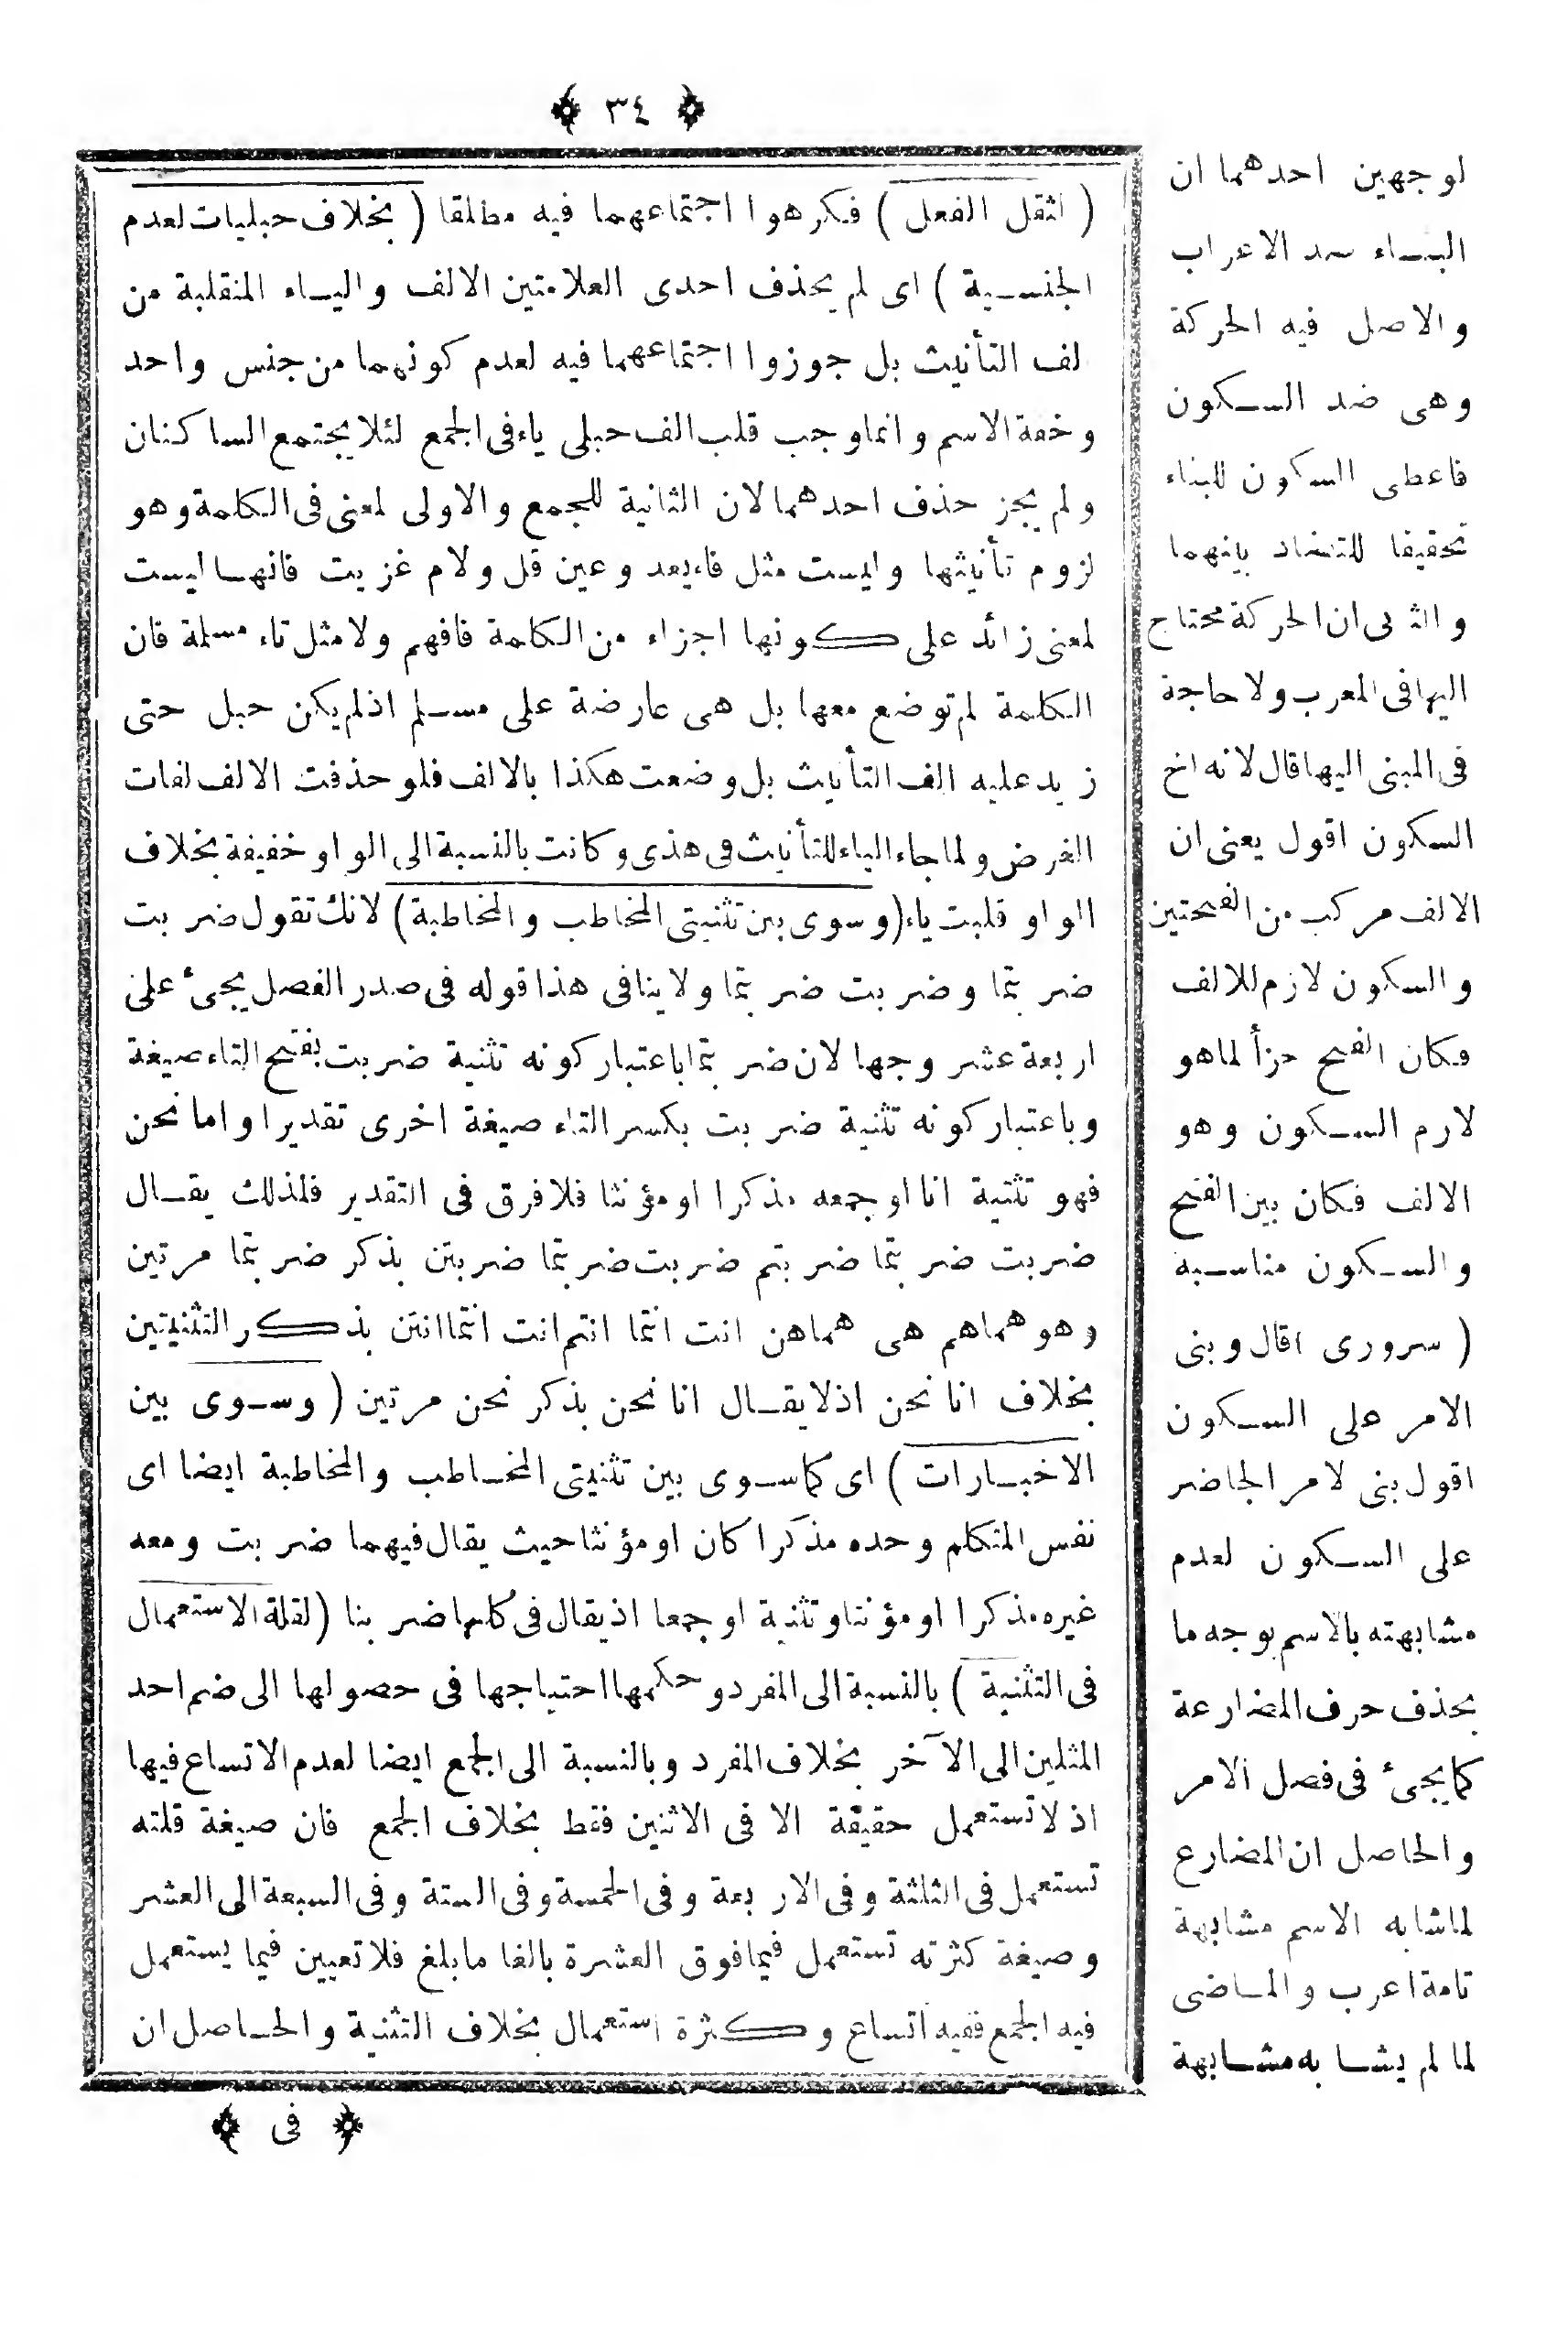 ﴿ ٣٤ ﴾
( لثقل الفعل ) فكرهوا اجتماعهما فيه مطلقا ( بخلاف حبليات لعدم
الجنسية ) اى لم يحذف احدى العلامتين الالف والياء المنقلبة من
الف التأنيث بل جوزوا اجتماعهما فيه لعدم كونهما من جنس واحد
وخفة الاسم وانما وجب قلب الف حبلى ياء فى الجمع لئلا يجتمع الساكنان
ولم يجز حذف احدهما لان الثانية للجمع والاولى لمعنى فى الكلمة وهو
لزوم تأنيثها وليست مثل فاء يعد وعين قل ولام غزيت فانها ليست
لمعنى زائد على كونها اجزاء من الكلمة فافهم ولا مثل تاء مسلمة فان
الكلمة لم توضع معها بل هى عارضة على مسلم اذ لم يكن حبل حتى
زيد عليه الف التأنيث بل وضعت هكذا بالالف فلو حذفت الالف لفات
الغرض ولما جاء الياء للتأنيث فى هذى وكانت بالنسبة الى الواو خفيفة بخلاف
الواو قلبت ياء (وسوى بين تثنيتى المخاطب والمخاطبة) لانك تقول ضربت
ضربتما وضربت ضربتما ولا ينافى هذا قوله فى صدر الفصل يجئ على
اربعة عشر وجها لان ضربتما باعتبار كونه تثنية ضربت بفتح التاء صيغة
وباعتبار كونه تثنية ضربت بكسر التاء صيغة اخرى تقديرا واما نحن
فهو تثنية انا او جمعه مذكرا او مؤنثا فلا فرق فى التقدير فلذلك يقال
ضربت ضربتما ضربتم ضربت ضربتما ضربتن بذكر ضربتما مرتين
وهو هما هم هى هما هن انت انتما انتم انت انتما انتن بذكر التثنيتين
بخلاف انا نحن اذ لا يقال انا نحن بذكر نحن مرتين ( وسوى بين
الاخبارات ) اى كما سوى بين تثنيتى المخاطب والمخاطبة ايضا اى
نفس المتكلم وحده مذكرا كان او مؤنثا حيث يقال فيهما ضربت ومعه
غيره مذكرا او مؤنثا وتثنية او جمعا اذ يقال فى كلها ضربنا (لقلة الاستعمال
فى التثنية ) بالنسبة الى المفرد وحكمها احتياجها فى حصولها الى ضم احد
المثلين الى الآخر بخلاف المفرد وبالنسبة الى الجمع ايضا لعدم الاتساع فيها
اذ لا تستعمل حقيقة الا فى الاثنين فقط بخلاف الجمع فان صيغة قلته
تستعمل فى الثلثة وفى الاربعة وفى الخمسة وفى الستة وفى السبعة الى العشر
وصيغة كثرته تستعمل فيما فوق العشرة بالغا ما بلغ فلا تعيين فيما يستعمل
فيه الجمع ففيه اتساع وكثرة استعمال بخلاف التثنية والحاصل ان
﴿ فى ﴾
لوجهين احدهما ان
البناء ضد الاعراب
والاصل فيه الحركة
وهى ضد السكون
فاعطى السكون للبناء
تحقيقا للتضاد بينهما
والثانى ان الحركة محتاج
اليها فى المعرب ولا حاجة
فى المبنى اليها قال لانه اخ
السكون اقول يعنى ان
الالف مركب من الفتحتين
والسكون لازم للالف
فكان الفتح جزأ لما هو
لازم السكون وهو
الالف فكان بين الفتح
والسكون مناسبة
( سرورى اقال وبنى
الامر على السكون
اقول بنى لامر الحاضر
على السكون لعدم
مشابهته بالاسم بوجه ما
بحذف حرف المضارعة
كما يجئ فى فصل الامر
والحاصل ان المضارع
لما شابه الاسم مشابهة
تامة اعرب والماضى
لما لم يشابه مشابهة